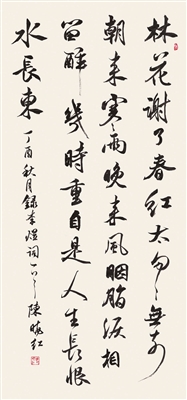 林花謝了春紅太匆〻無奈
朝来寒雨晚来風胭脂淚相
留醉幾時重自是人生長恨
水長東 丁酉秋月錄李煜詞一首 陳曉紅